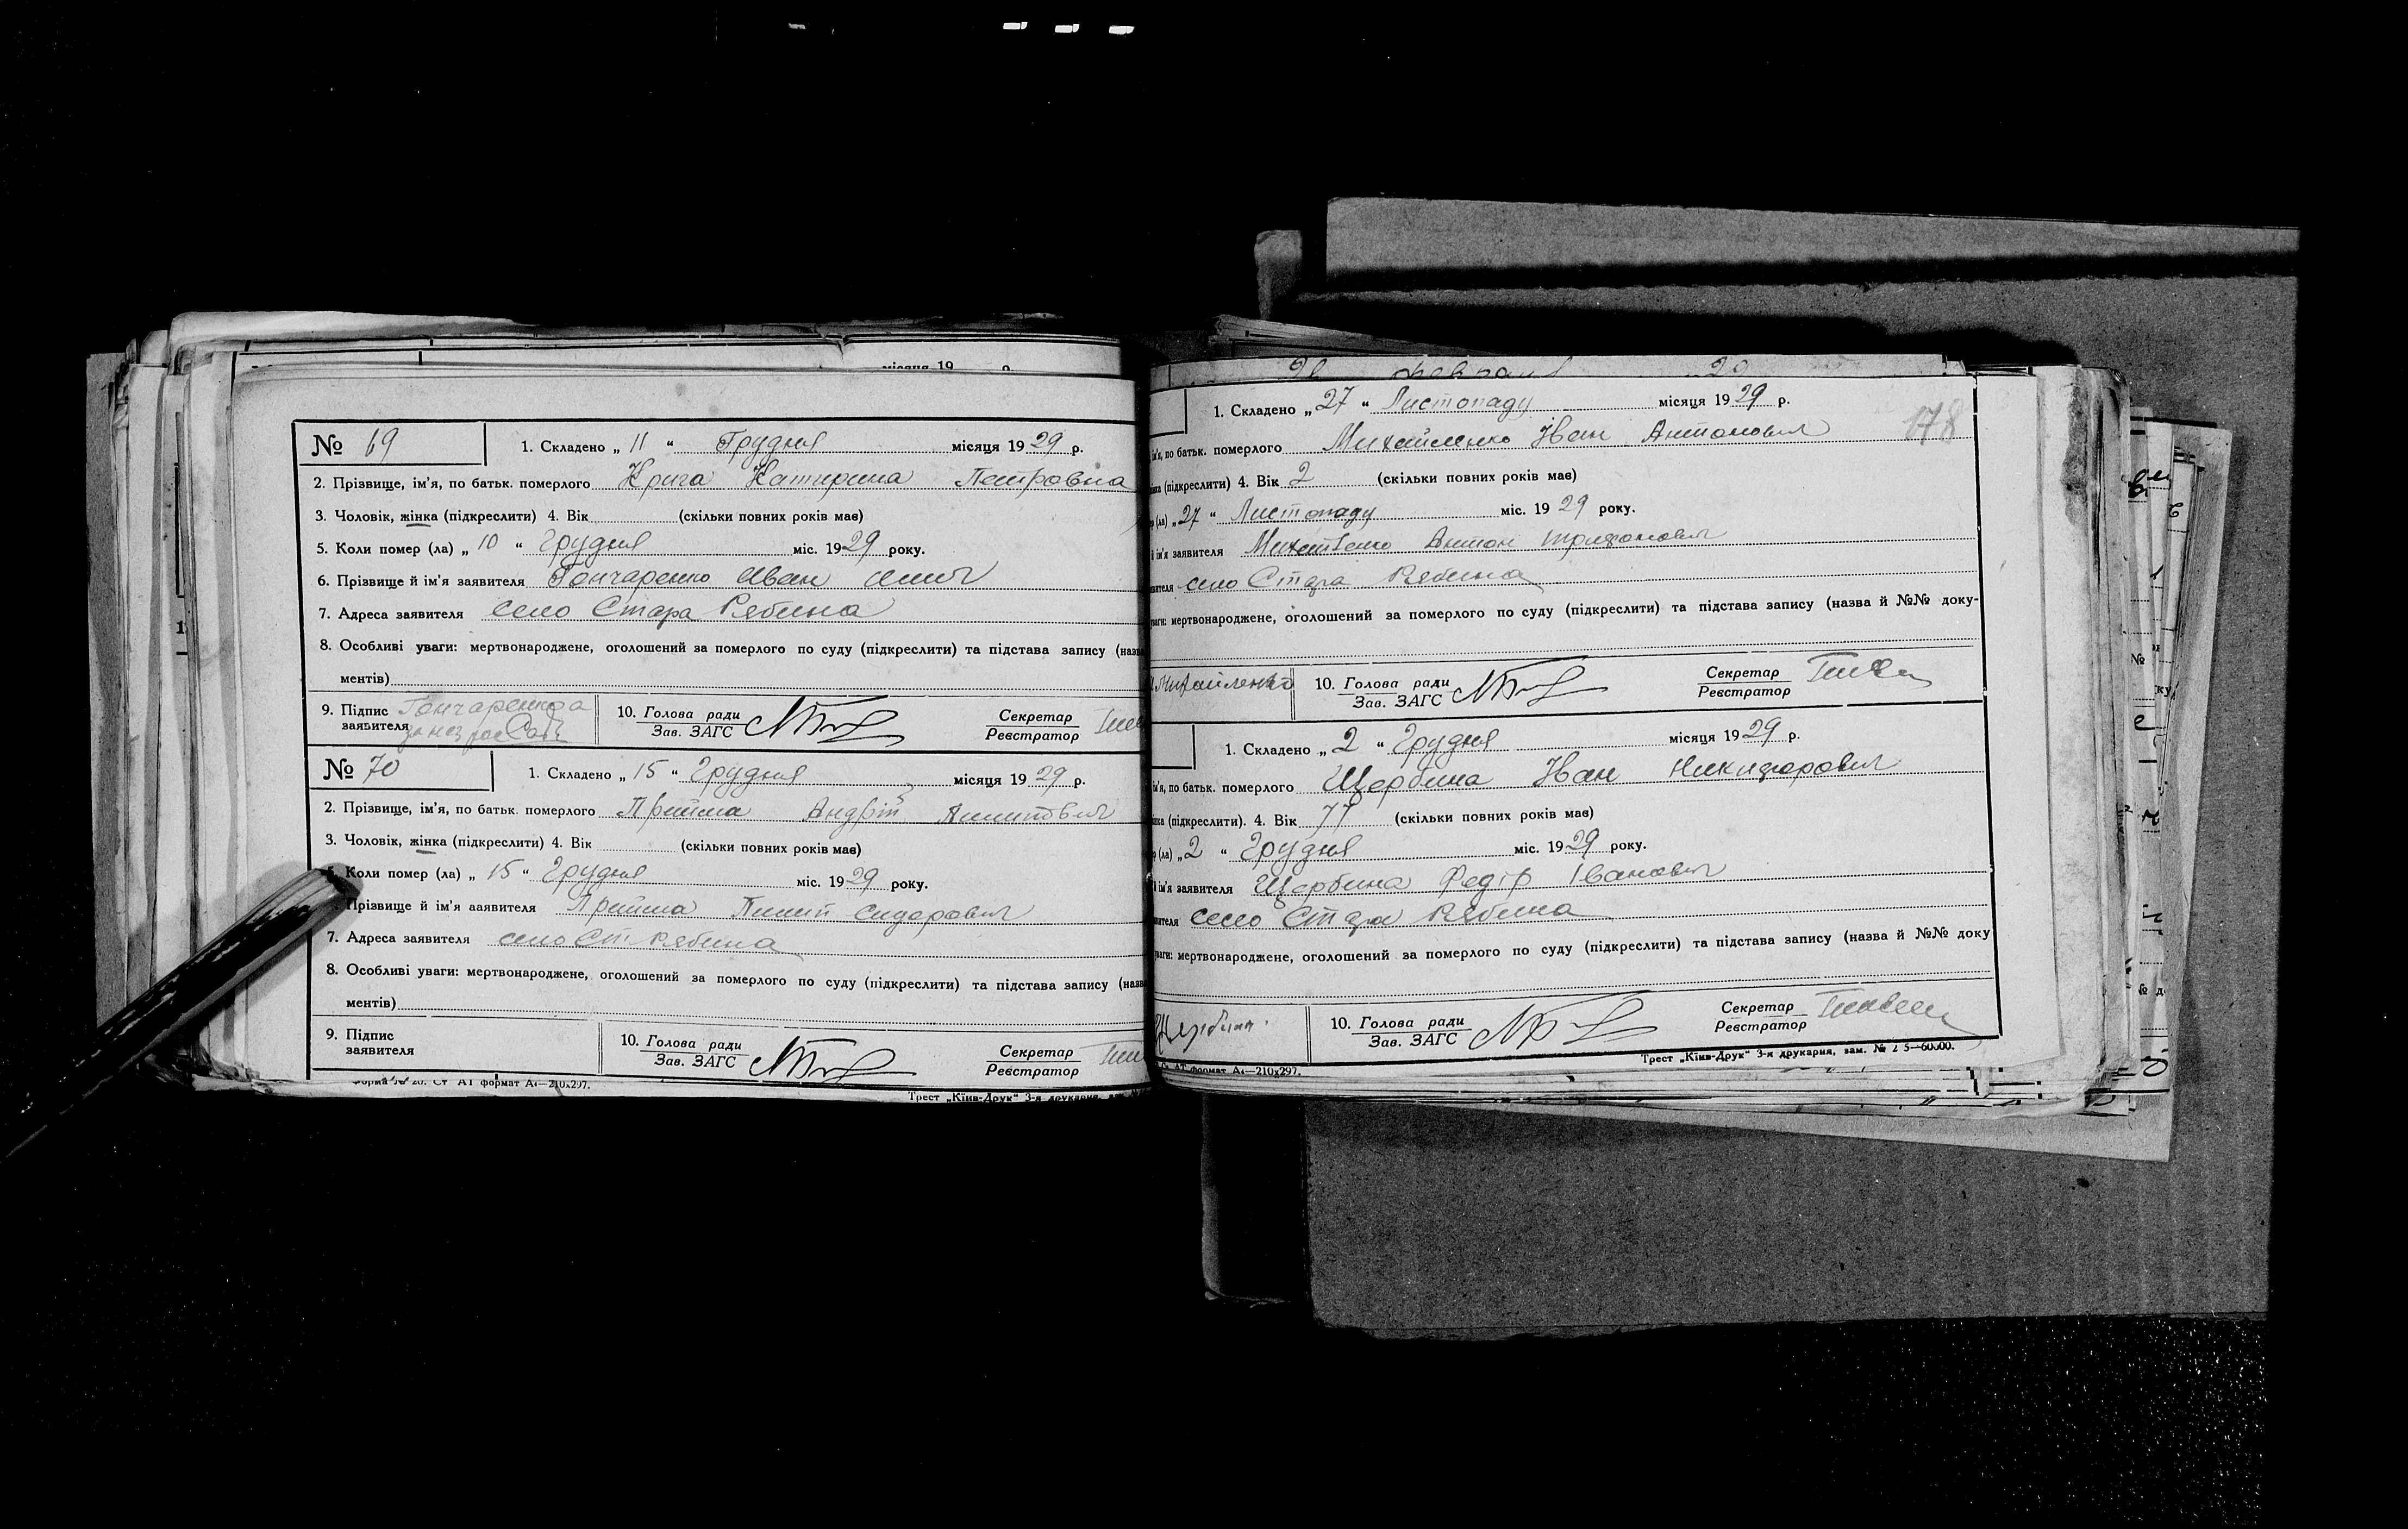 місяця 19
№ 69
1. Складено „ 11 “ Грудня місяця 1929 р.
2. Прізвище, ім'я, по батьк. померлого Крига Катерина Петровна
3. Чоловік, жінка (підкреслити) 4. Вік (скільки повних років має)
5. Коли помер (ла) „ 10 “ Грудня міс. 1929 року.
6. Прізвище й ім'я заявителя Гончаренко Иван
7. Адреса заявителя село Стара Рябина
8. Особливі уваги: мертвонароджене, оголошений за померлого по суду (підкреслити) та підстава запису (назв
ментів)
9. Підпис заявителя Гончаренко
10. Голова ради
Зав. ЗАГС
Секретар
Реєстратор
№ 70
1. Складено „ 15 “ Грудня місяця 1929 р.
2. Прізвище, ім'я, по батьк. померлого Прийма Андрій
3. Чоловік, жінка (підкреслити) 4. Вік (скільки повних років має)
Коли помер (ла) „ 15 “ Грудня міс. 1929 року.
Прізвище й ім'я аявителя Прийма Пилип Сидорович
7. Адреса заявителя село Ст Рябина
8. Особливі уваги: мертвонароджене, оголошений за померлого по суду (підкреслити) та підстава запису (назв
ментів)
9. Підпис
заявителя
10. Голова ради
Зав. ЗАГС
Секретар
Реєстратор
Форма № 20. Ст АТ формат А4—210х297.
Трест „Київ-Друк“ 3-я друкарня,
1. Складено „ 27 “ Листопаду місяця 1929 р.
178
ім'я, по батьк. померлого Михайленко Іван Антонович
(підкреслити) 4. Вік 2 (скільки повних років має)
(ла) „ 27 “ Листопаду міс. 1929 року.
й ім'я заявителя Михайленко Антон Трифонович
село Стара Рябина
мертвонароджене, оголошений за померлого по суду (підкреслити) та підстава запису (назва й №№ доку-
Михайленко
10. Голова ради
Зав. ЗАГС
Секретар
Реєстратор
1. Складено „ 2 “ Грудня місяця 1929 р.
ім'я, по батьк. померлого Щербина Іван Никифорович
(підкреслити). 4. Вік 77 (скільки повних років має)
(ла) „ 2 “ Грудня міс. 1929 року.
й ім'я заявителя Щербина Федір Іванович
село Стара Рябина
мертвонароджене, оголошений за померлого по суду (підкреслити) та підстава запису (назва й №№ доку
Щербина
10. Голова ради
Зав. ЗАГС
Секретар
Реєстратор
АТ формат А4—210х297.
Трест „Київ-Друк“ 3-я друкарня, зам. №